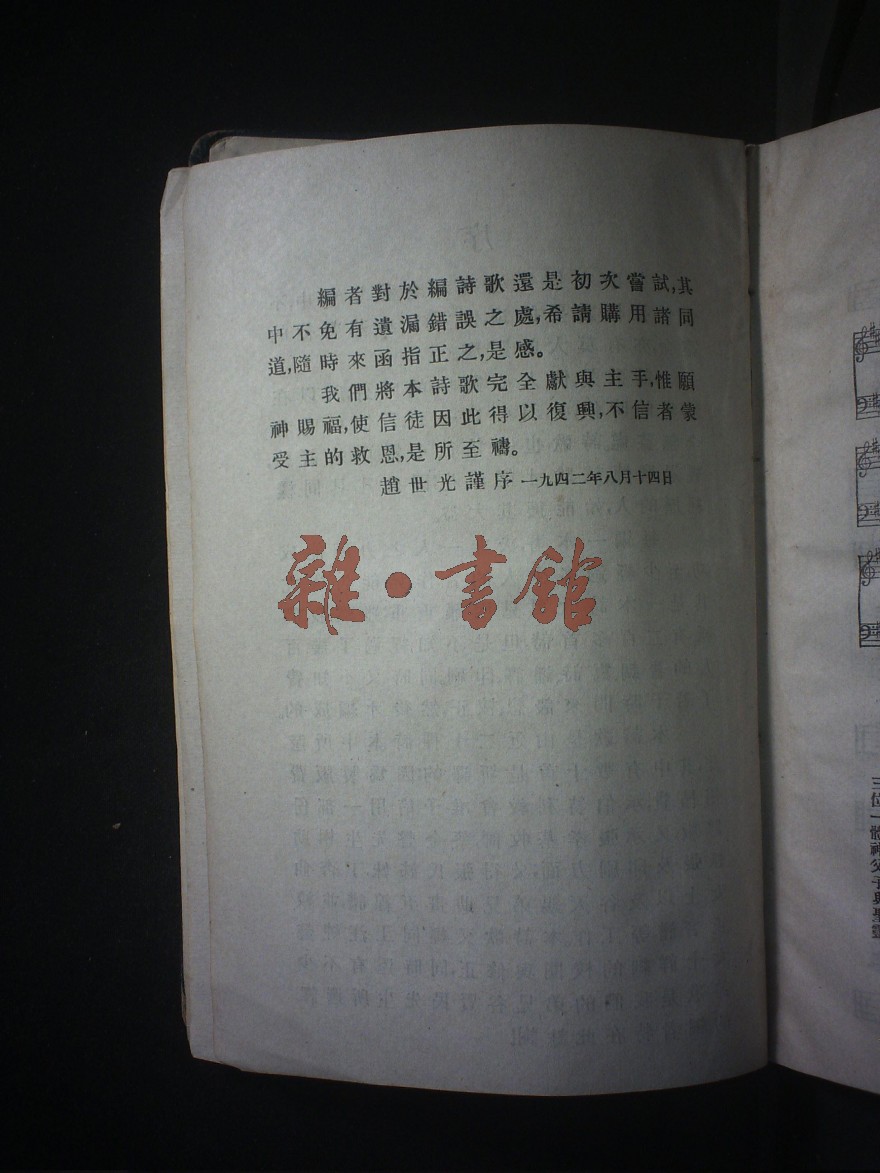 編者對於編詩歌還是初次嘗試,其
中不免有遺漏錯誤之處,希請購用諸同
道,隨時來函指正之,是感。
我們將本詩歌完全獻與主手,惟願
神賜福,使信徒因此得以復興,不信者蒙
受主的救恩,是所至禱。
趙世光謹序 一九四二年八月十四日
雜・書館
三位一體神父子與聖靈